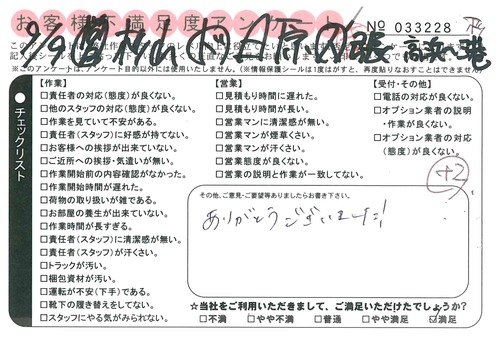 お客様不満足度アンケート
No 033228
※このアンケートは、アンケート目的以外には使用いたしません。(※情報保護シールは1度はがすと、再度貼りなおすことはできません)
●チェックリスト
【作業】
□責任者の対応(態度)が良くない。
□他のスタッフの対応(態度)が良くない。
□作業を見ていて不安がある。
□責任者(スタッフ)に好感が持てない。
□お客様への挨拶が出来ていない。
□ご近所への挨拶・気遣いが無い。
□作業開始前の内容確認がなかった。
□作業開始時間が遅れた。
□荷物の取り扱いが雑である。
□お部屋の養生が出来ていない。
□作業時間が長すぎる。
□責任者(スタッフ)に清潔感が無い。
□責任者(スタッフ)が汗くさい。
□トラックが汚い。
□梱包資材が汚い。
□運転が不安(下手)である。
□靴下の履き替えをしてない。
□スタッフにやる気がみられない。
【営業】
□見積もり時間に遅れた。
□見積もり時間が長い。
□営業マンに清潔感が無い。
□営業マンが煙草くさい。
□営業マンが汗くさい。
□営業態度が良くない。
□営業の説明と作業が一致してない。
【受付・その他】
□電話の対応が良くない。
□オプション業者の説明
・作業が良くない。
□オプション業者の対応
(態度)が良くない。
+2
その他、ご意見・ご要望等ありましたらお書き下さい。
ありがとうございました!
☆当社をご利用いただきまして、ご満足いただけたでしょうか?
□不満 □やや不満 □普通 □やや満足 ☑満足